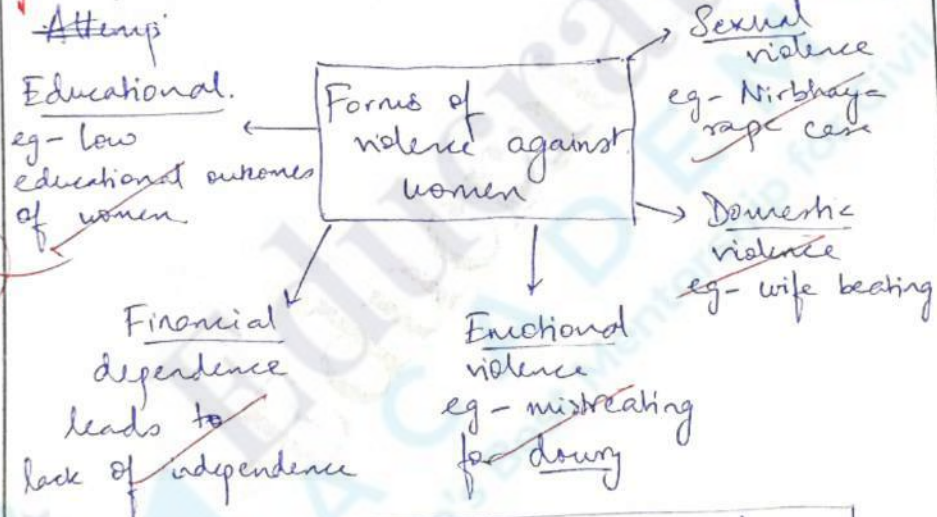 Attemp
Educational.
eg - Low
educational outcomes
of women
Forms of
violence against
women
Sexual
violence
eg - Nirbhaya
rape case
Domestic
violence
eg - wife beating
Financial
dependence
leads to
lack of independence
Emotional
violence
eg - mistreating
for dowry
Educra
ACADEM
's Best Mentorship for Civil